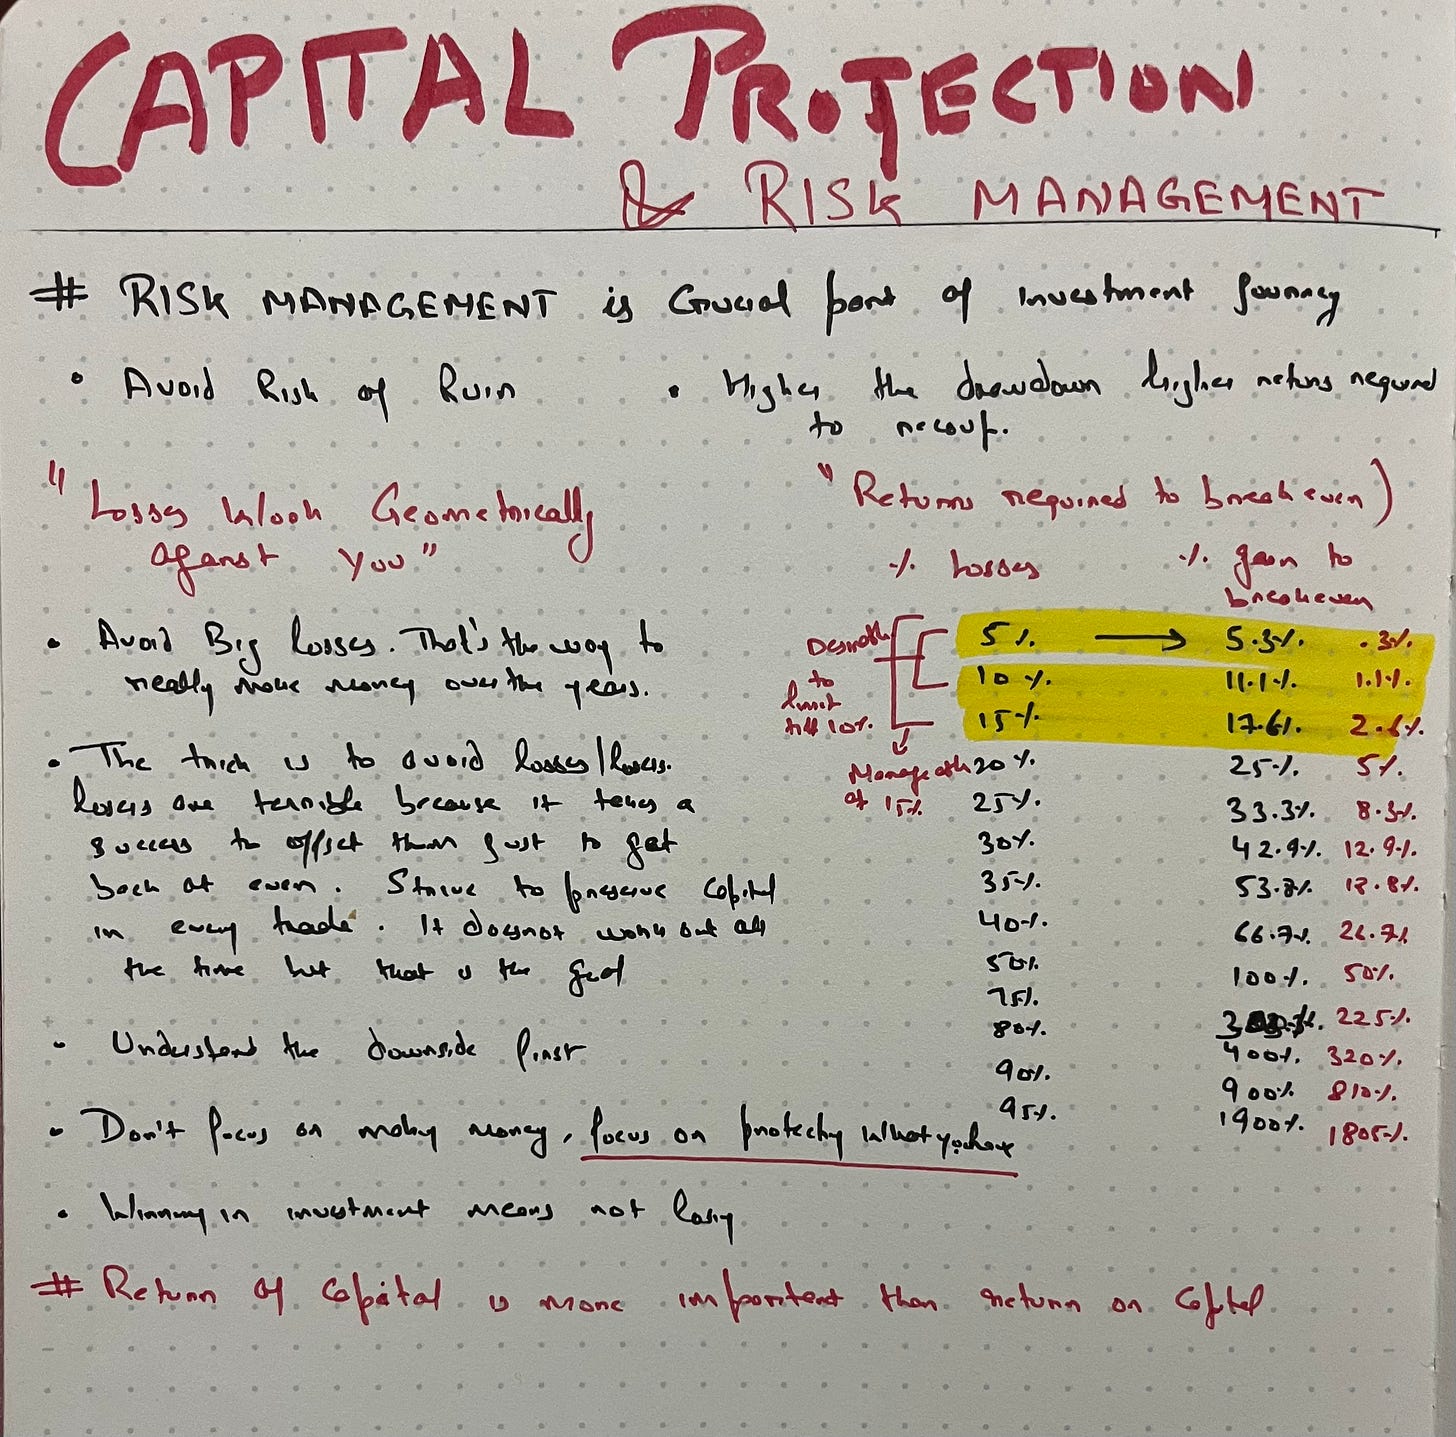 CAPITAL PROTECTION
& RISK MANAGEMENT
# RISK MANAGEMENT is Crucial part of investment Journey
• Avoid Risk of Ruin
• Higher the drawdown higher returns required
to recoup.
"Losses Work Geometrically
against you"
"Returns required to breakeven)
% Losses
% gain to
breakeven
• Avoid Big losses. That's the way to
really make money over the years.
• The trick is to avoid losses/losers.
losers are terrible because it takes a
success to offset them just to get
back at even. Strive to preserve capital
in every trade. It doesnot work out all
the time but that is the goal
• Understand the downside first
• Don't focus on making money, focus on protecting what you have
• Winning in investment means not losing
to
limit
till 10%.
Manage
at 15%
5% → 5.3% .3%
10% 11.1% 1.1%
15% 17.6% 2.6%
20% 25% 5%
25% 33.3% 8.3%
30% 42.9% 12.9%
35% 53.8%
40% 66.7% 26.7%
50% 100% 50%
75% 225%
80% 400% 320%
90% 900% 810%
95% 1900% 1805%
# Return of Capital is more important than return on Capital